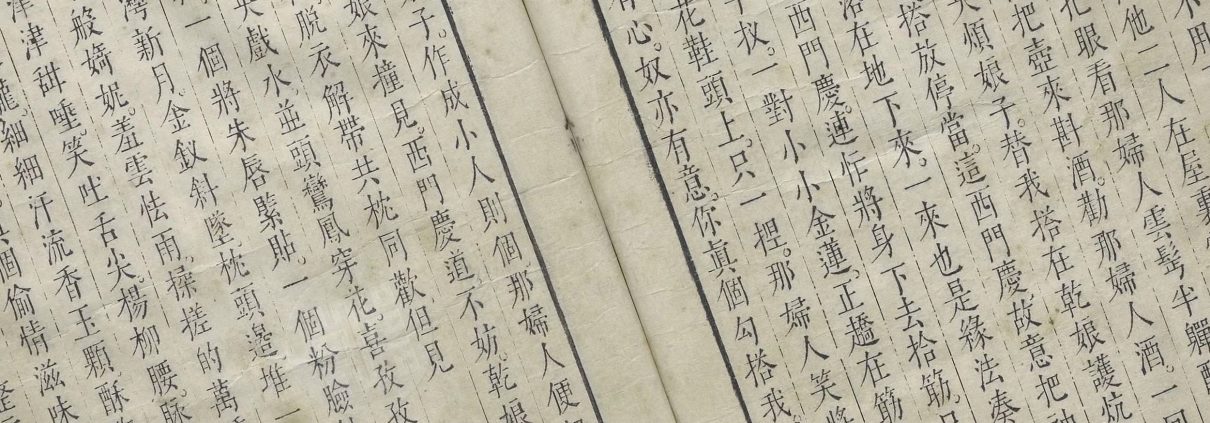 不用
他二人在屋裏
把眼看那婦人雲髩半軃
把壺來斟酒。勸那婦人酒。一回
娘子。替我搭在乾娘護炕
搭放停當。這西門慶故意把
落在地下來。一來也是緣法湊
西門慶。連忙將身下去拾筯。只
手杖。一對小小金蓮。正趫在筯
花鞋頭上。只一揑。那婦人笑將
有心。奴亦有意。你真個勾搭我
子。作成小人則個那婦人便
娘來撞見。西門慶道不妨。乾娘
脫衣解帶共枕同歡但見
戲水。並頭鸞鳳穿花。喜孜孜
一個將朱唇緊貼。一個粉臉
新月。金釵斜墜。枕頭邊堆一
般嬌妮。羞雲怯雨。揉搓的萬
津甜唾。笑吐舌尖楊柳腰。脉
細細汗流香玉顆酥
個偷情滋味